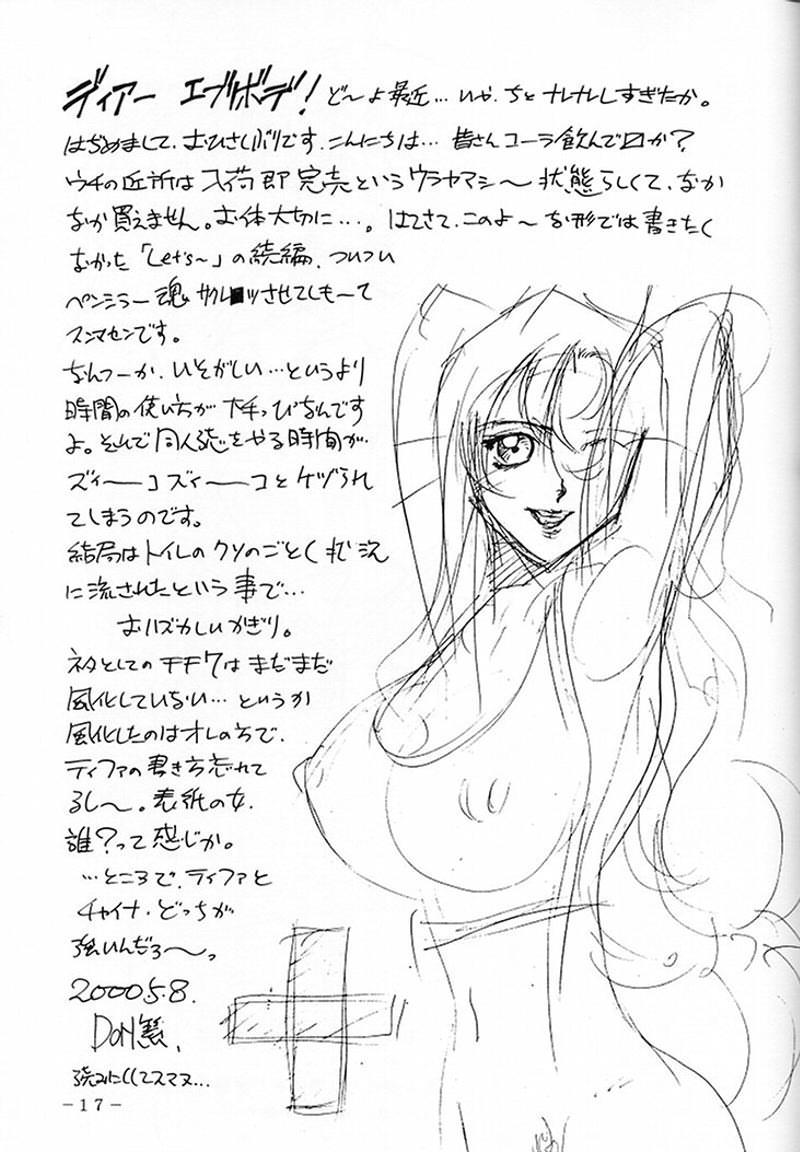 ディアー エブリボデ! ど〜よ最近…いや、ちとナレナレしすぎたか。
はぢめまして、おひさしブリです、こんにちは… 皆さんコーラ飲んで か?
ウチの近所は入荷即完売というウラヤマシ〜状態らしくて、なか
なか買えません。お体大切に…。はてさて、このよ〜な形では書きたく
なかった「Let's〜」の続編、ついつい
ペンシラー魂 サクレ ツさせてしも〜て
スンマセンです。
なんつーか、いそがしい…というより
時間の使い方が ヘタっぴなんです
よ。そんで同人誌をやる時間が
ズィーコズィーコとケヅられ
てしまうのです。
結局はトイレのクソのごとく状況
に流されたという事で…
おハズかしいかぎり。
ネタとしてのFF7はまだまだ
風化していない…というか
風化したのはオレの方で、
ティファの書き方忘れて
るし〜。表紙の女、
誰?って感じか。
…ところで、ティファと
チャイナ、どっちが
強いんだろ〜っ
2000.5.8.
DON繁、
読みにくくてスマヌ…
-17-